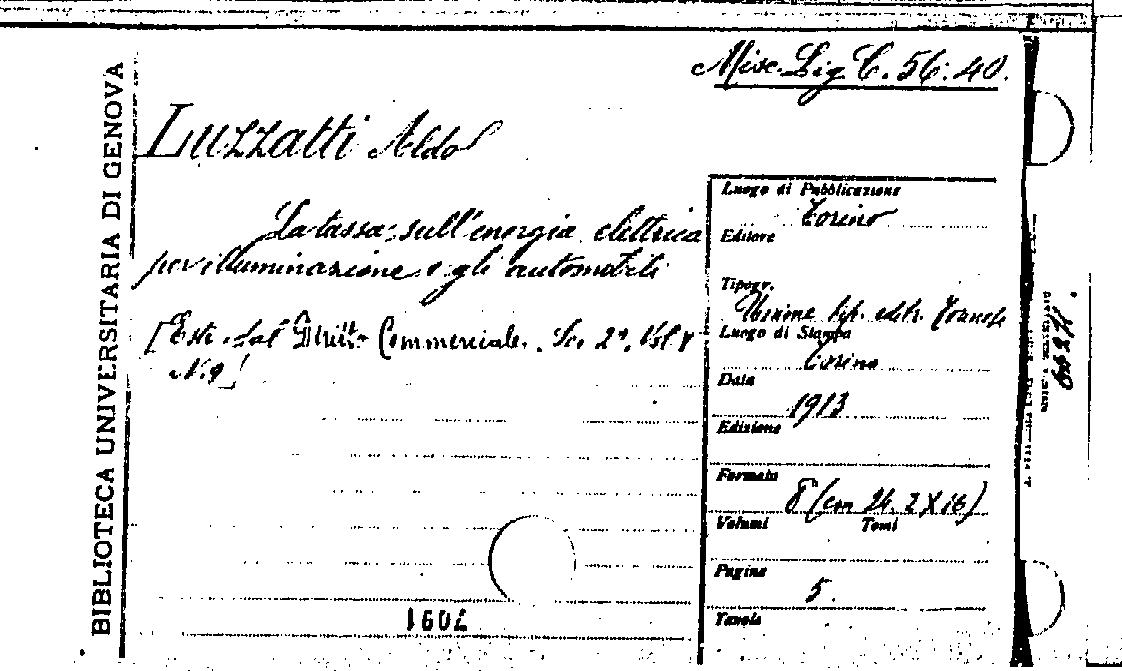 BIBLIOTECA UNIVERSITARIA DI GENOVA
Misc. Lig. C. 56. 40.
Luzzatti Aldo
La tassa sull'energia elettrica
per illuminazione e gli automobili
[Estr. dal Diritto Commerciale. Se. 2ª, Vol. V
N. 9]
Luogo di Pubblicazione
Torino
Editore
Tipogr.
Unione tip. editr. Torinese
Luogo di Stampa
Torino
Data
1913
Edizione
Formato
8° (cm 24.2 X 16)
Volumi Tomi
Pagine
5.
Tavole